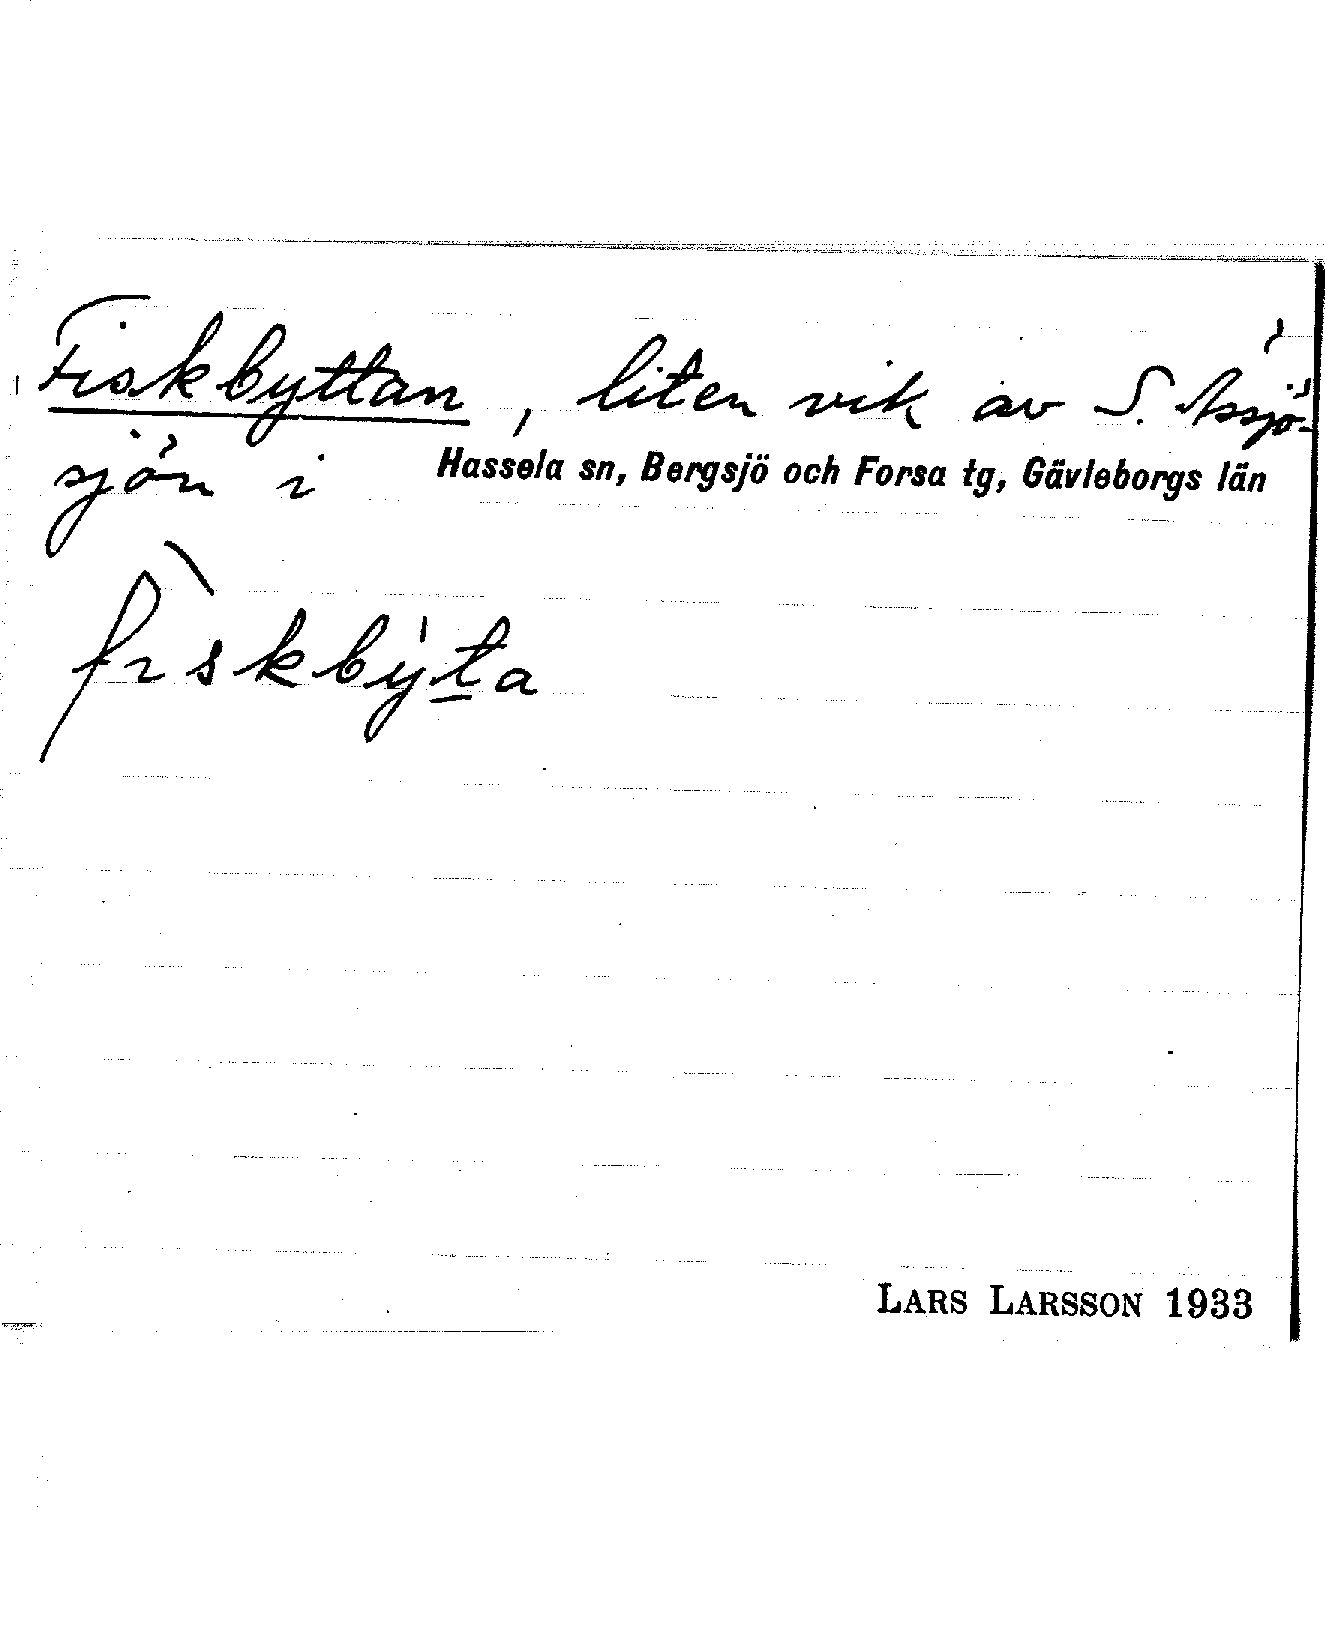 Fiskbyttan, liten vik av S. Assjö-
sjön i Hassela sn, Bergsjö och Forsa tg, Gävleborgs län
fı̀skbýt̲a
LARS LARSSON 1933